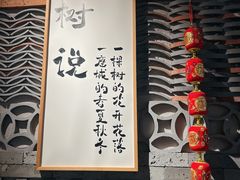 树
说
一棵树的花开花落
一座城的春夏秋冬